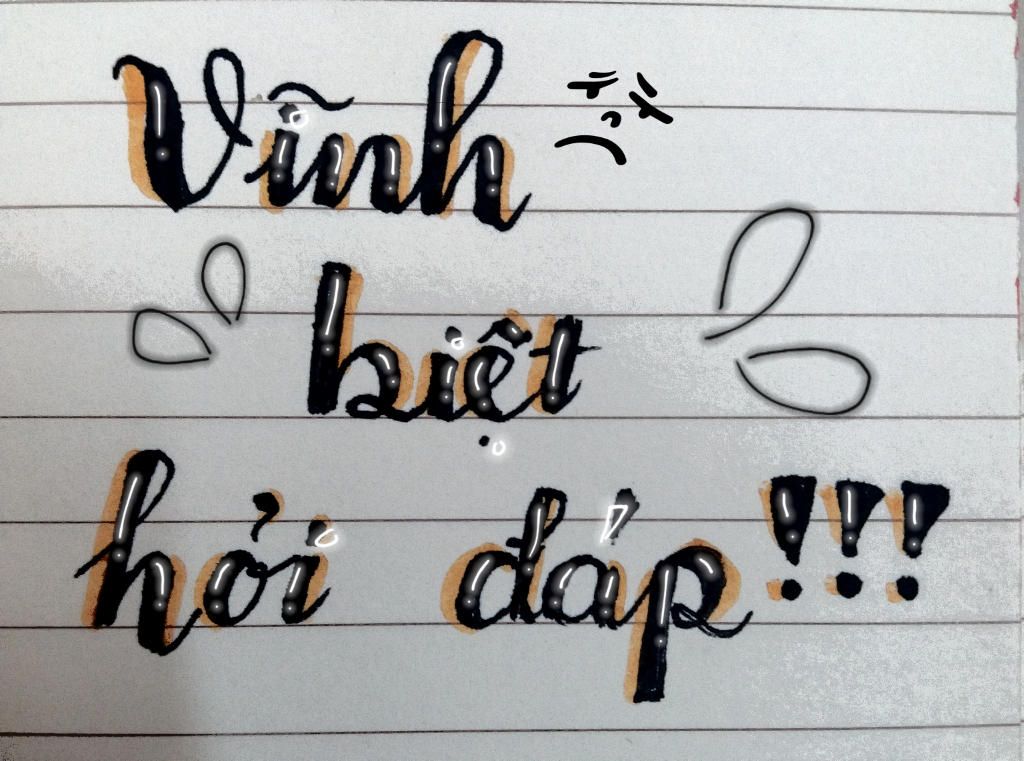 Vĩnh
biệt
hỏi đáp!!!